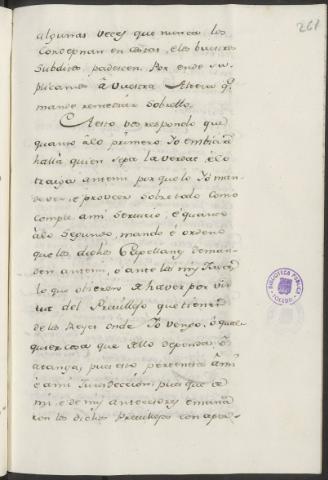 261
algunas veces que nunca los
Condepnan en cosas, elos buestros
Subditos padescen. Por ende su-
plicamos â Vuestra Alteza q.
mande remediar sobrello.
Aesto vos respondo que
quanto âlo primero Yo embiaré
halla quien sepa la verdad é lo
traiga antemi por que lo Yo man-
de ver, é proveer sobre todo como
cumple ami Servicio, é quanto
álo Segundo, mando é ordeno
que los dichos Capellanes deman-
den antemi, o ante los mis
lo que obieren de haver por vir-
tud del Previllejo que tienen
de los Reyes onde Yo vengo, ó qual-
quier cosa que dello dependa, ó
atanga, pues esto pertenece âmi
é ami Jurisdicción, pues que de
mi, e de mis antecesores emana-
ron los dichos Previllejos con aper-
BIBLIOTECA PUBLICA
TOLEDO